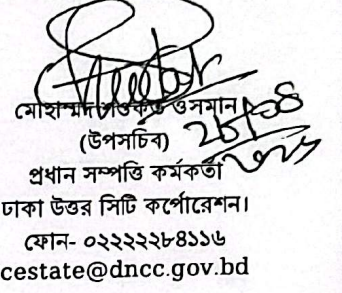 মোহাম্মদ শওকত ওসমান
(উপসচিব)
প্রধান সম্পত্তি কর্মকর্তা
ঢাকা উত্তর সিটি কর্পোরেশন।
ফোন- ০২২২২২৮৪১১৬
cestate@dncc.gov.bd